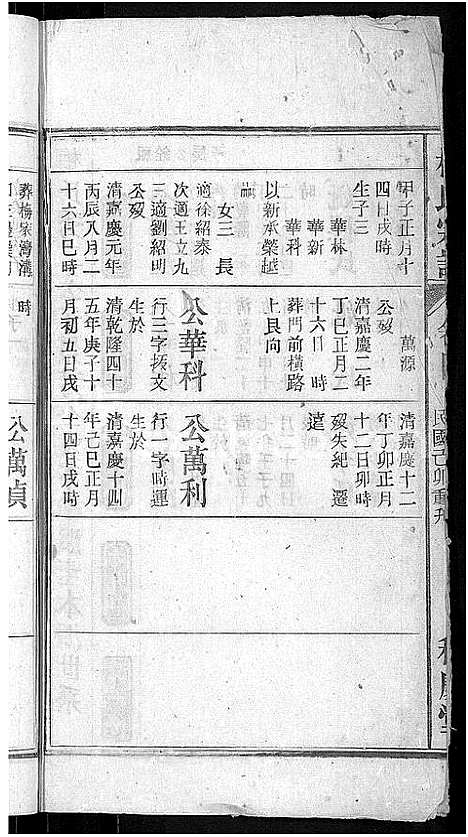 甲子正月十
四日戌時
生子三
華林
華新
華科
以新承榮越
嗣
女三 長
適徐紹泰
次適王立九
三適劉紹明
公歿
清嘉慶元年
丙辰八月二
十六日巳時
萬源
公歿
清嘉慶二年
丁巳正月二
十六日 時
葬門前橫路
上艮向
公華科
行三字振文
生於
清乾隆四十
五年庚子十
月初五日戌
時
清嘉慶十二
年丁卯正月
十二日卯時
歿失紀 遷
遠
公萬利
行一字時運
生於
清嘉慶十四
年己巳正月
十四日戌時
公萬貞
葬楊家灣溝
民國己卯重刊